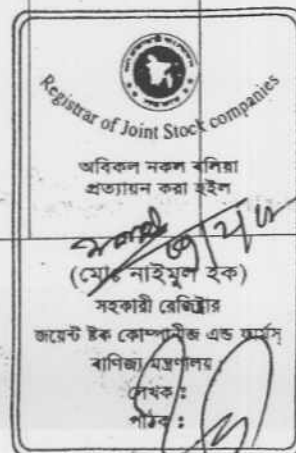 Registrar of Joint Stock companies
অবিকল নকল বলিয়া
প্রত্যায়ন করা হইল
(মোঃ নাইমুল হক)
সহকারী রেজিষ্ট্রার
জয়েন্ট ষ্টক কোম্পানীজ এন্ড ফার্মস্
বাণিজ্য মন্ত্রণালয়
লেখক :
পাঠক :